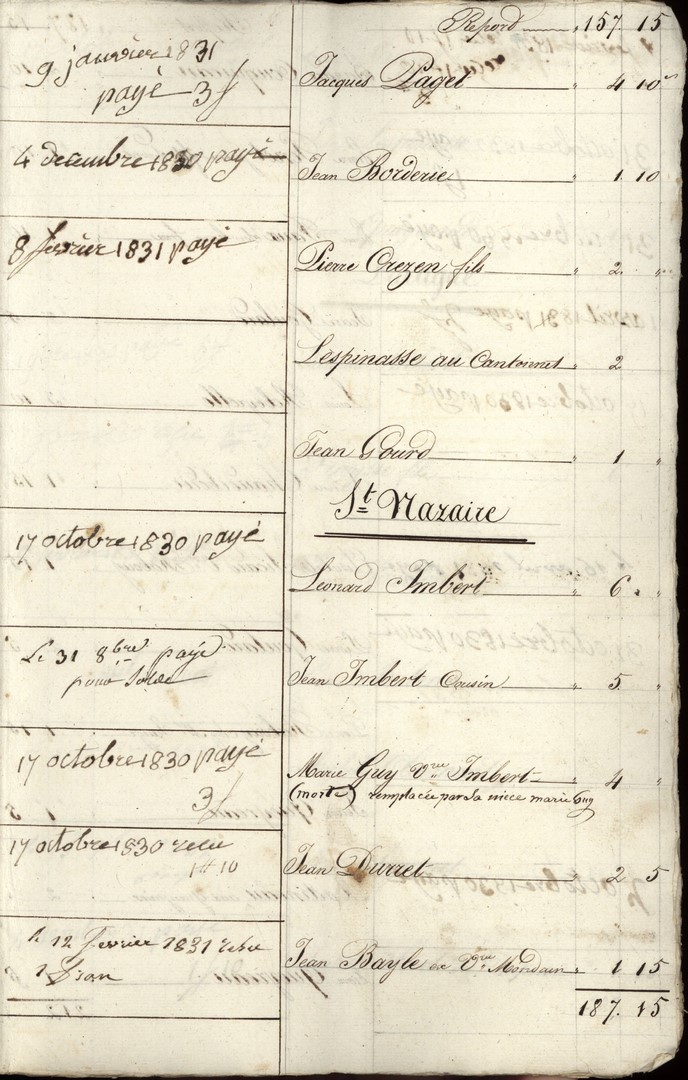 Report " 157. 15
9 janvier 1831
payé 3f
Jacques Paget " 4 10
4 decembre 1830 payé
Jean Borderie " 1. 10
8 fevrier 1831 payé
Pierre Crezen fils " 2. "
Lespinasse au Cantonnet " 2
Jean Gourd " 1 "
St Nazaire
17 octobre 1830 payé
Léonard Imbert " 6 "
Le 31 8bre payé
pour solde
Jean Imbert Cousin " 5. "
17 octobre 1830 payé
3f
Marie Guy Vve Imbert " 4 "
(morte) remplacée par sa niece marie Guy
17 octobre 1830 recu
1# 10
Jean Durret " 2 5
le 12 fevrier 1831 recu
1
Jean Bayle Vve Mondain " 1 15
187. 15